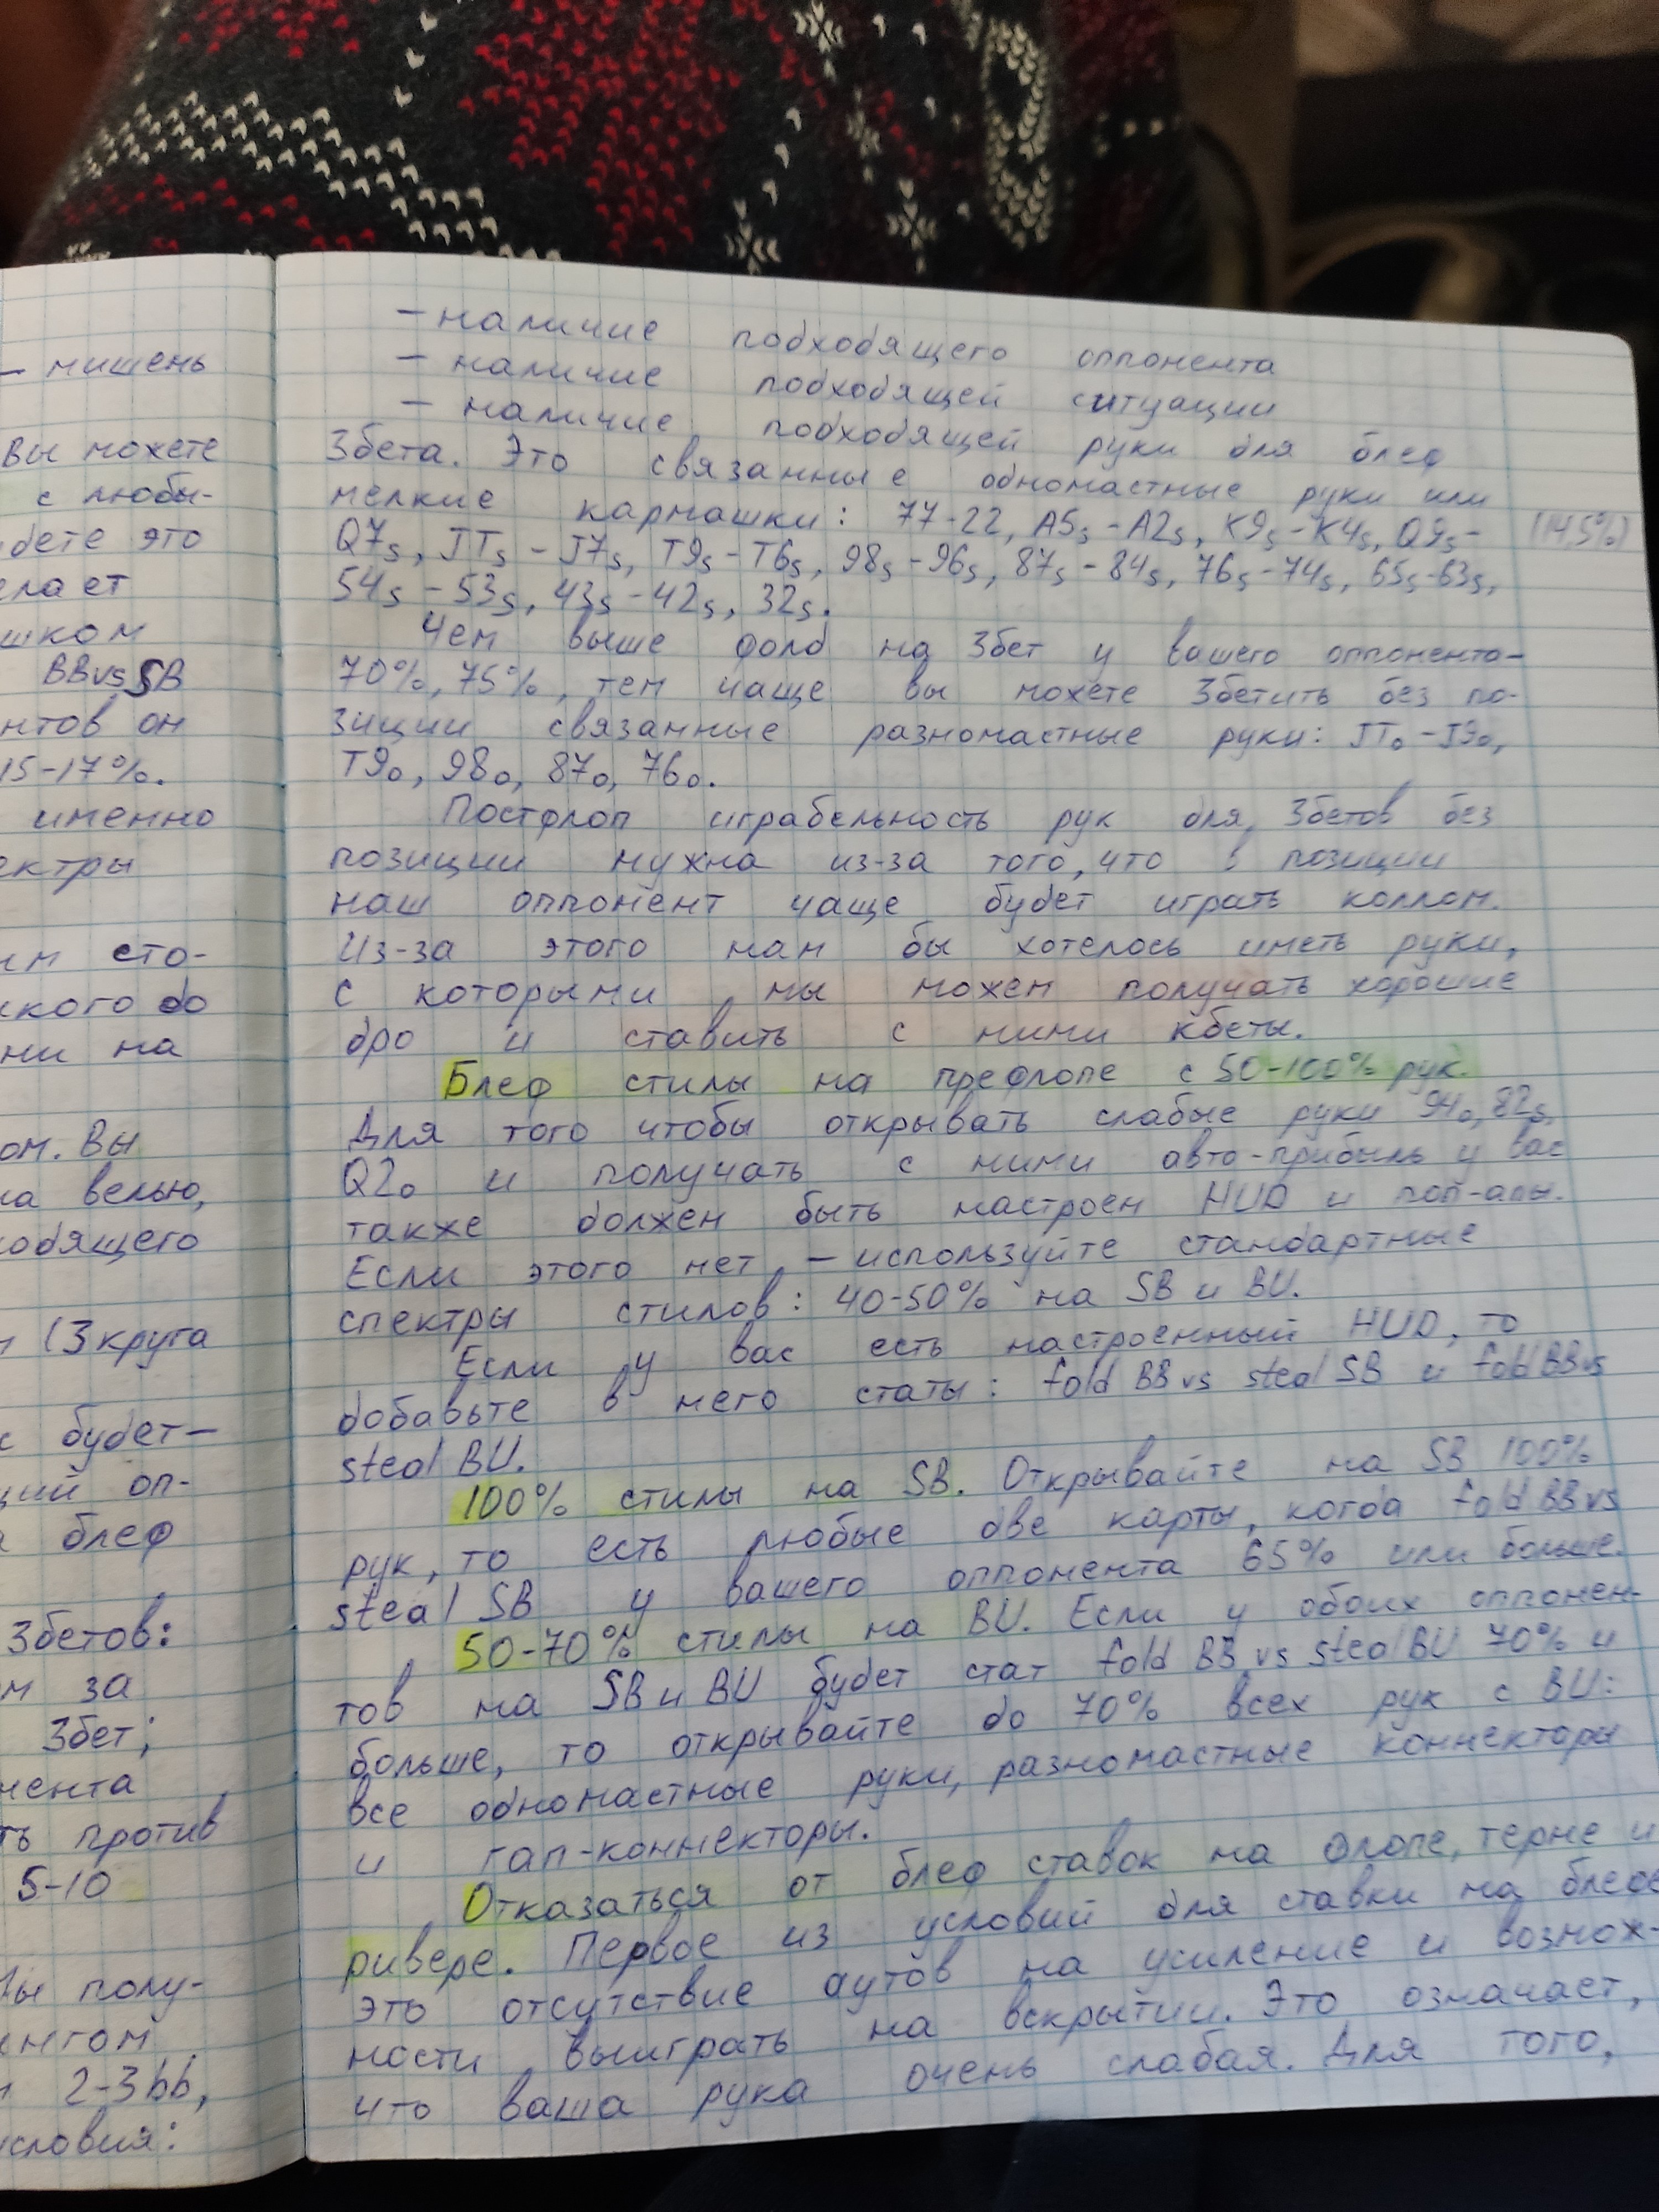 – мишень
Вы можете
с любы-
бете это
елает
шком
BB vs SB
нтов он
15-17%.
именно
ектры
им сто-
ского до
ни на
ом. Вы
на велью,
одящего
(3 круга
с будет –
щий оп-
блеф
3бетов:
м за
3бет;
нента
ть против
5-10
Вы полу-
нгом
2-3bb,
словия:
– наличие подходящего оппонента
– наличие подходящей ситуации
– наличие подходящей руки для блеф
3бета. Это связанные одномастные руки или
мелкие кармашки: 77-22, A5s-A2s, K9s-K4s, Q9s- (14,5%)
Q7s, JTs-J7s, T9s-T6s, 98s-96s, 87s-84s, 76s-74s, 65s-63s,
54s-53s, 43s-42s, 32s.
Чем выше фолд на 3бет у вашего оппонента-
70%, 75%, тем чаще вы можете 3бетить без по-
зиции связанные разномастные руки: JTo-J9o,
T9o, 98o, 87o, 76o.
Постфлоп играбельность рук для 3бетов без
позиции нужна из-за того, что в позиции
наш оппонент чаще будет играть коллом.
Из-за этого нам бы хотелось иметь руки,
с которыми мы можем получать хорошие
дро и ставить с ними кбеты.
Блеф стилы на префлопе с 50-100% рук.
Для того чтобы открывать слабые руки 94o, 82s,
Q2o и получать с ними авто-прибыль у вас
также должен быть настроен HUD и поп-апы.
Если этого нет, – используйте стандартные
спектры стилов: 40-50% на SB и BU.
Если у вас есть настроенный HUD, то
добавьте в него статы: fold BB vs steal SB и fold BB vs
steal BU.
100% стилы на SB. Открывайте на SB 100%
рук, то есть любые две карты, когда fold BB vs
steal SB у вашего оппонента 65% или больше.
50-70% стилы на BU. Если у обоих оппонен-
тов на SB и BU будет стат fold BB vs steal BU 70% и
больше, то открывайте до 70% всех рук с BU:
все одномастные руки, разномастные коннекторы
и гап-коннекторы.
Отказаться от блеф ставок на флопе, терне и
ривере. Первое из условий для ставки на блефе
это отсутствие аутов на усиление и возмож-
ности выиграть на вскрытии. Это означает,
что ваша рука очень слабая. Для того,